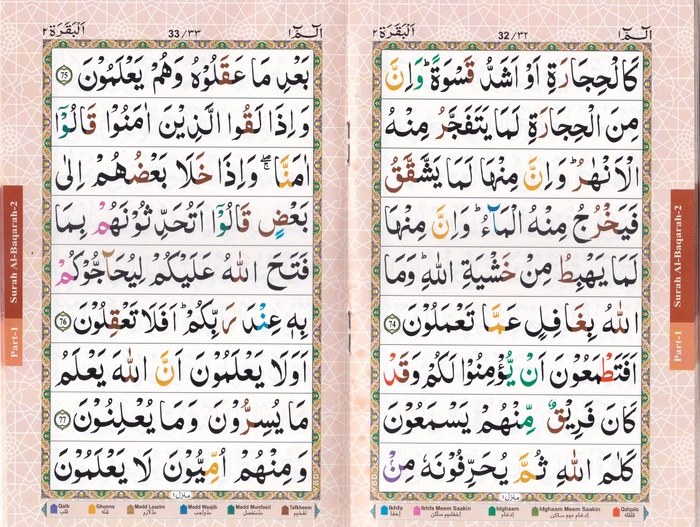 الٓمّٓ ١
32/٣٢
اَلْبَقَرَة ٢
كَالْحِجَارَةِ اَوْ اَشَدُّ قَسْوَةً ؕ وَاِنَّ
مِنَ الْحِجَارَةِ لَمَا يَتَفَجَّرُ مِنْهُ
الْاَنْهٰرُ ؕ وَاِنَّ مِنْهَا لَمَا يَشَّقَّقُ
فَيَخْرُجُ مِنْهُ الْمَآءُ ؕ وَاِنَّ مِنْهَا
لَمَا يَهْبِطُ مِنْ خَشْيَةِ اللّٰهِ ؕ وَمَا
اللّٰهُ بِغَافِلٍ عَمَّا تَعْمَلُوْنَ 74
اَفَتَطْمَعُوْنَ اَنْ يُّؤْمِنُوْا لَكُمْ وَقَدْ
كَانَ فَرِيْقٌ مِّنْهُمْ يَسْمَعُوْنَ
كَلٰمَ اللّٰهِ ثُمَّ يُحَرِّفُوْنَهٗ مِنْۢ
منزل ١
Ikhfa Ikhfa Meem Saakin Idghaam Idghaam Meem Saakin Qalqala
اخفا اخفا میم ساکن ادغام ادغام میم ساکن قلقله
Surah Al-Baqarah-2
Part-1
الٓمّٓ ١
33/٣٣
اَلْبَقَرَة ٢
بَعْدِ مَا عَقَلُوْهُ وَهُمْ يَعْلَمُوْنَ 75
وَاِذَا لَقُوا الَّذِيْنَ اٰمَنُوْا قَالُوْٓا
اٰمَنَّا ۖۚ وَاِذَا خَلَا بَعْضُهُمْ اِلٰى
بَعْضٍ قَالُوْٓا اَتُحَدِّثُوْنَهُمْ بِمَا
فَتَحَ اللّٰهُ عَلَيْكُمْ لِيُحَآجُّوْكُمْ
بِهٖ عِنْدَ رَبِّكُمْ ؕ اَفَلَا تَعْقِلُوْنَ 76
اَوَلَا يَعْلَمُوْنَ اَنَّ اللّٰهَ يَعْلَمُ
مَا يُسِرُّوْنَ وَمَا يُعْلِنُوْنَ 77
وَمِنْهُمْ اُمِّيُّوْنَ لَا يَعْلَمُوْنَ
منزل ١
Qalb Ghunna Madd Laazim Madd Waajib Madd Munfasil Tafkheem
قلب غنّه مدّلازم مدّواجب مدّمنفصل تفخیم
Surah Al-Baqarah-2
Part-1